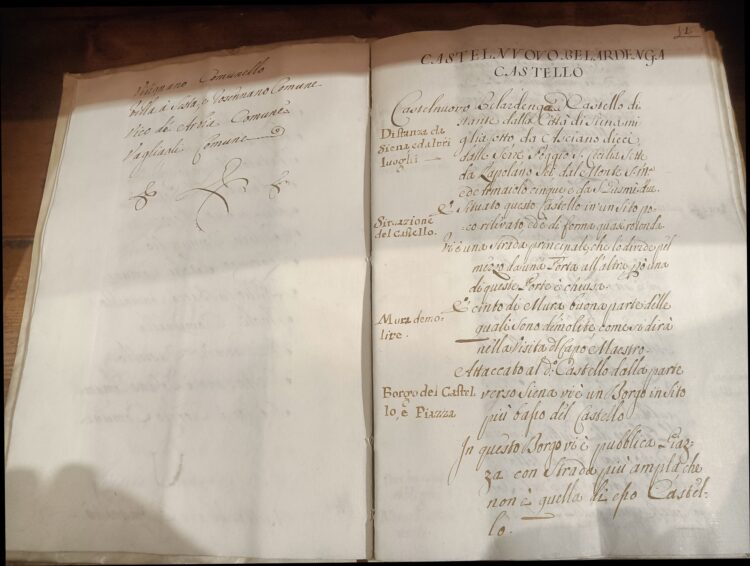 Comunello
Villa a Sesta, o Poscinnano Comune
Vico di Arbla Comune
Pagliaali Comune
51
CASTELNUOVO BELARDENGA
CASTELLO
Castelnuovo Belardenga Castello di
stante dalla Città di Siena mi
glia otto da Asciano dieci
dalle Serre Poggio S. Cecilia Sette
da Rapolano Set. dal Monte
e da cinque e da due.
Distanza da
Siena, ed altri
luoghi
È Situato questo Castello in un Sito po
co rilevato, ed è di forma quasi rotonda
Situazione
del Castello.
Vi è una Strada principale, che lo divide pel
mezzo da una Porta all'altra, però una
di queste Porte è chiusa.
È cinto di Mura buona parte delle
quali sono demolite come si dirà
nella Visita del Capo Maestro.
Mura demo-
lite.
Attaccato al do. Castello dalla parte
verso Siena vi è un Borgo in sito
più basso del Castello
Borgo del Castel
lo, e Piazza
In questo Borgo vi è pubblica Piaz-
za con Strada più ampla che
non è quella di esso Castel-
lo.